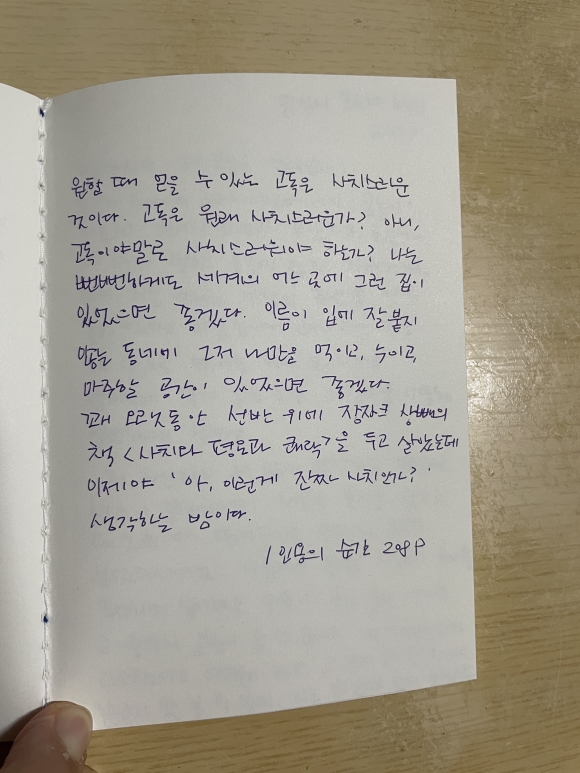 원할 때 얻을 수 있는 고독은 사치스러운
것이다. 고독은 원래 사치스러운가? 아니,
고독이야말로 사치스러워야 하는가? 나는
뻔뻔하게도 세계의 어느 곳에 그런 집이
있었으면 좋겠다. 이름이 입에 잘 붙지
않는 동네에 그저 나만을 먹이고, 누이고,
마주할 공간이 있었으면 좋겠다.
꽤 오랫동안 선반 위에 장자크 상뻬의
책 <사치와 평온과 쾌락>을 두고 살았는데
이제야 '아, 이런게 진짜 사치인가?'
생각하는 밤이다.
1인용의 순간 208P